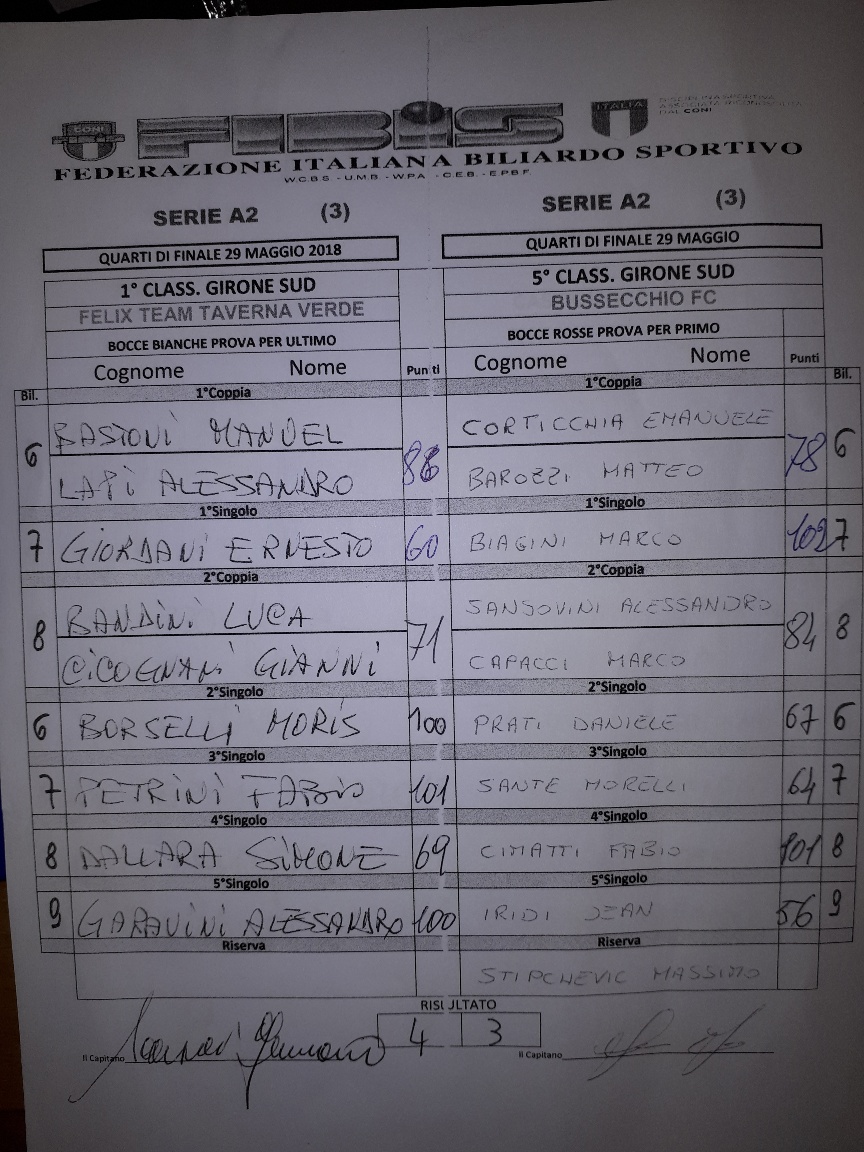 CONI
FIBiS
ITALFA
DISCIPLINA SPORTIVA
ASSOCIATA RICONOSCIUTA
DAL CONI
FEDERAZIONE ITALIANA BILIARDO SPORTIVO
W.C.B.S. - U.M.B. - W.P.A. - C.E.B. - E.P.B.F.
SERIE A2 (3) SERIE A2 (3)
QUARTI DI FINALE 29 MAGGIO 2018 QUARTI DI FINALE 29 MAGGIO
1° CLASS. GIRONE SUD 5° CLASS. GIRONE SUD
FELIX TEAM TAVERNA VERDE BUSSECCHIO FC
BOCCE BIANCHE PROVA PER ULTIMO BOCCE ROSSE PROVA PER PRIMO
Cognome Nome Punti Cognome Nome Punti
Bil. 1°Coppia 1°Coppia Bil.
6 BASIONI MANUEL 86 CORTICCHIA EMANUELE 78 6
LAPI ALESSANDRO BAROZZI MATTEO
1°Singolo 1°Singolo
7 GIORDANI ERNESTO 60 BIAGINI MARCO 102 7
2°Coppia 2°Coppia
8 BANDINI LUCA 71 SANSOVINI ALESSANDRO 84 8
CICOGNANI GIANNI CAPACCI MARCO
2°Singolo 2°Singolo
6 BORSELLI MORIS 100 PRATI DANIELE 67 6
3°Singolo 3°Singolo
7 PETRINI FABIO 101 SANTE MORELLI 64 7
4°Singolo 4°Singolo
8 DALLARA SIMONE 69 CIMATTI FABIO 101 8
5°Singolo 5°Singolo
9 GARAVINI ALESSANDRO 100 IRIDI JEAN 56 9
Riserva Riserva
STIPCHEVIC MASSIMO
RISULTATO
4 3
Il Capitano Il Capitano